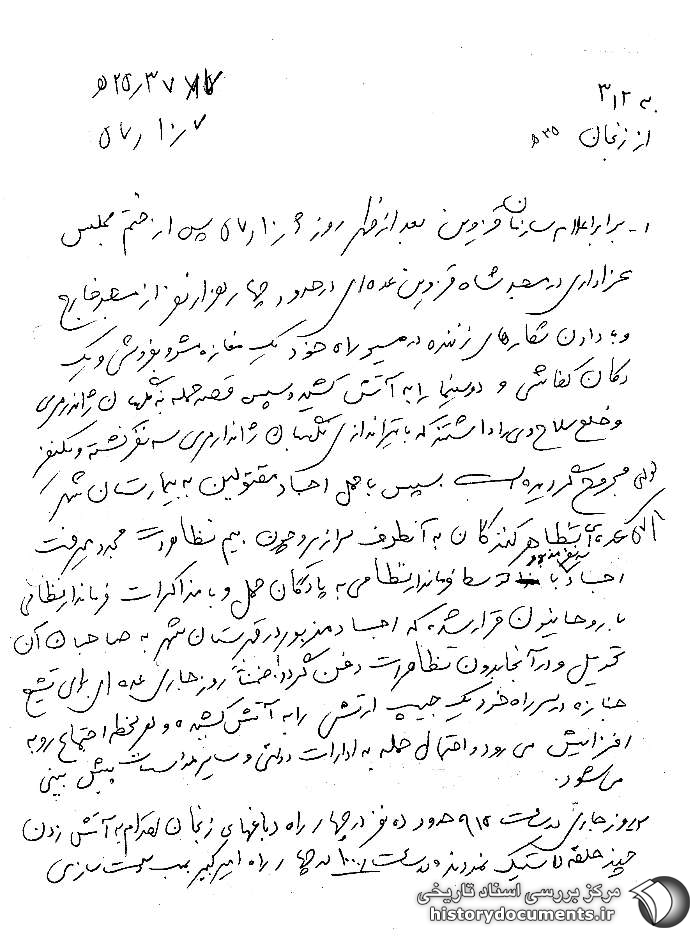 به ۳۱۲
۲۵۳۷
از زنجان ۳۵ ه
۷ر۱۰ر۵۷
۱- برابر اعلام سازمان قزوین بعد از ظهر روز ۶ر۱۰ر۵۷ پس از ختم مجلس
عزاداری در مسجد شاه قزوین عده ای در حدود چهار هزار نفر از مسجد خارج
و با دادن شعارهای زننده در مسیر راه خود یک مغازه مشروبفروشی و یک
دکان کفاشی و دو سینما را به آتش کشیده و سپس قصد حمله به نگهبان ژاندارمری
و خلع سلاح وی را داشتند که با تیراندازی نگهبان ژاندارمری سه نفر کشته و یکنفر
مجروح گردیده است سپس با حمل اجساد مقتولین به بیمارستان شهر
عده‌ای تظاهر کنندگان به آنطرف سرازیر و چون بیم تظاهرات مجدد میرفت
اجساد سه نفر مزبور توسط فرماندار نظامی به پادگان حمل و با مذاکرات فرماندار نظامی
با روحانیون قرار شد که اجساد مزبور در قبرستان شهر به صاحبان آن
تحویل و در آنجا بدون تظاهرات دفن گردد ضمناً روز جاری عده ای برای تشیع
جنازه در سر راه خود یک جیپ ارتشی را به آتش کشیده و هر لحظه اجتماع رو به
افزایش می رود و احتمال حمله به ادارات دولتی و سایر موسسات پیش بینی
می شود.
۲- روز جاری ساعت ۹۱۵ حدود ده نفر در چهار راه دباغهای زنجان اقدام به آتش زدن
چند حلقه لاستیک نمودند و ساعت ۱۰۰۰ در چهار راه امیرکبیر بمب دست سازی
مرکز بررسی اسناد تاریخی
historydocuments.ir